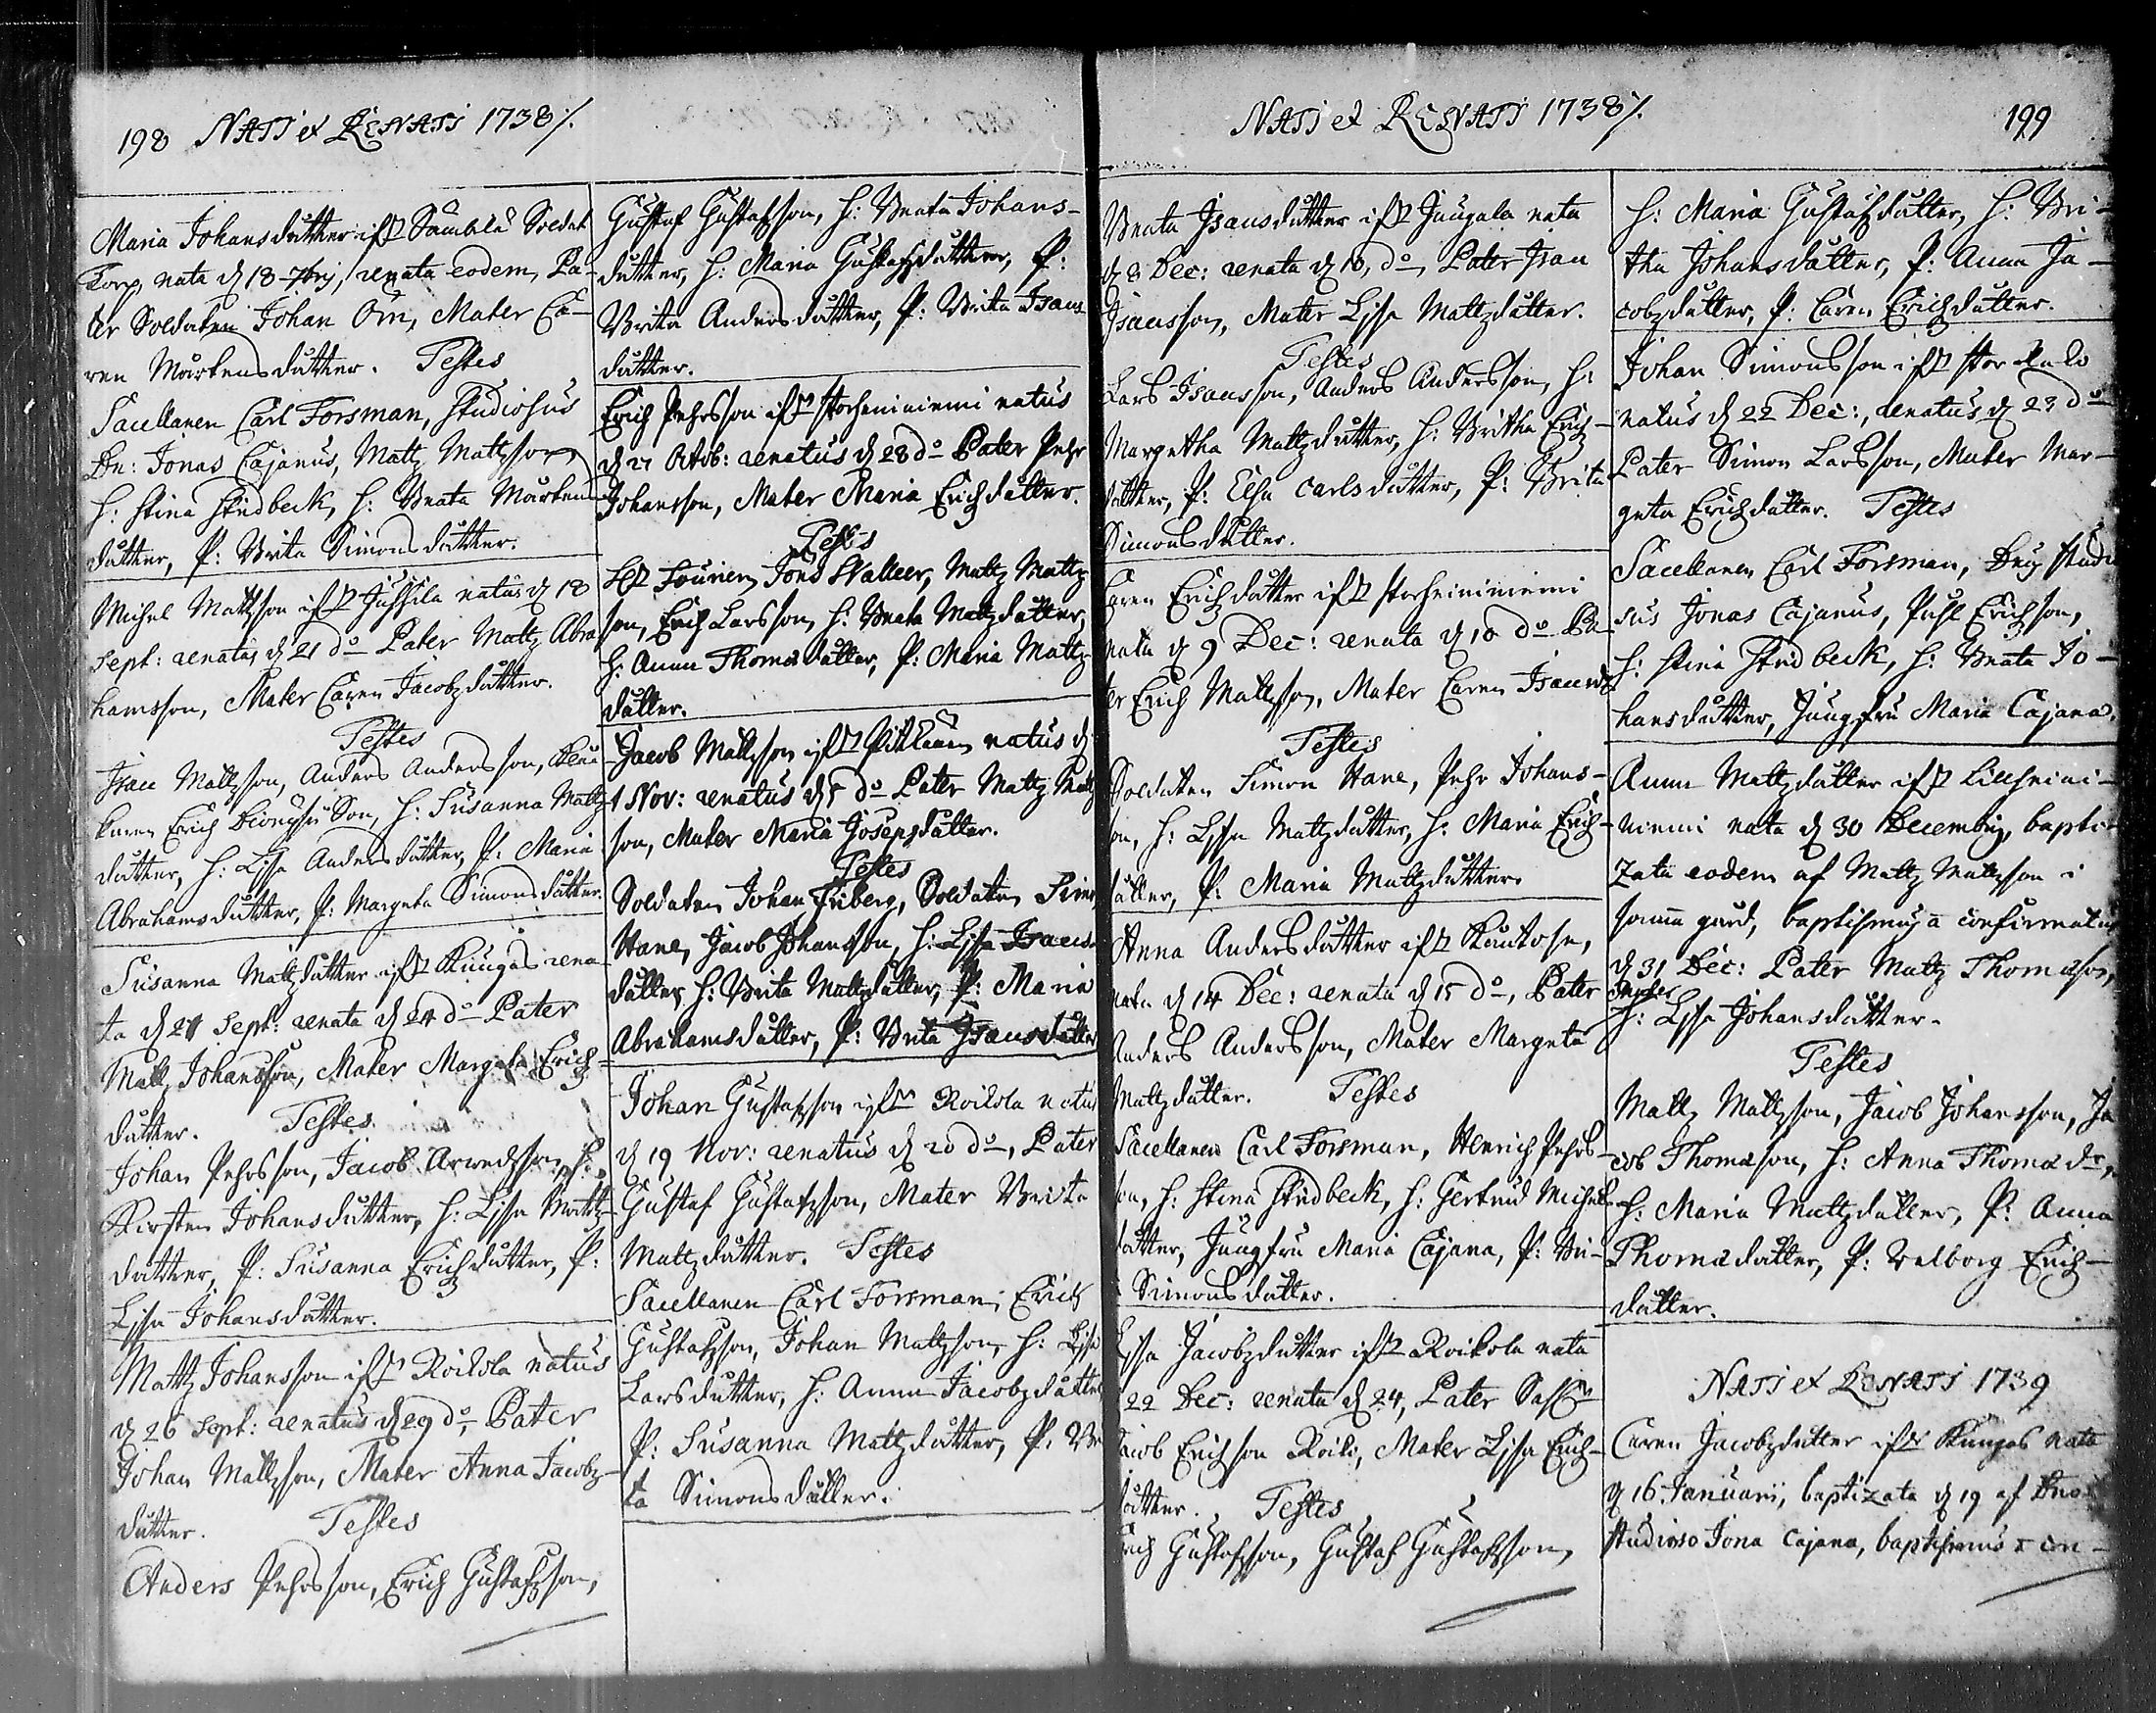 198 NATI et RENATI 1738 ⁒.
Maria Johansdutter ifr Sämblä Soldat
Torp, nata d 18 7brj, renata eodem, Pa-
ter Soldaten Johan Örn, Mater Ca-
ren Mårtensdutter. Testes
Sacellanen Carl Forsman, Studiosus
Dn: Jonas Cajanus, Mattz Mattzson,
H: Stina Stedbeck, H: Beata Mårtens
dutter, P: Brita Simonsdutter.
Michel Mattzson ifr Jussila natus d 18
Sept: renatus d 21 do Pater Mattz Abra
hamsson, Mater Caren Jacobzdutter.
Testes
Isac Mattzson, Anders Andersson,
Erich Dionysii Son, H: Susanna Mattz
dutter, H: Lisa Andersdutter, P: Maria
Abrahamsdutter, P: Margeta Simonsdutter.
Susanna Mattzdutter ifr Kungas rena
ta d 21 Sept: renata d 24 do Pater
Mattz Johansson, Mater Margeta Erich-
dutter. Testes
Johan Pehrsson, Jacob Arvedzson, H:
Kirsten Johansdutter, H: Lisa Mattz
dutter, P: Susanna Erichdutter, P:
Lisa Johansdutter.
Mattz Johansson ifr Roikola natus
d 26 Sept: renatus d 29 do, Pater
Johan Mattzson, Mater Anna Jacobz-
dutter. Testes
Anders Pehrsson, Erich Gustafzson,
Gustaf Gustafzson, H: Beata Johans-
dutter, H: Maria Gustafzdutter, P:
Brita Andersdutter, P: Brita Isacs
dutter.
Erich Pehrsson ifr Storheininiemi natus
d 27 Octob: renatus d 28 do Pater Pehr
Johansson, Mater Maria Erichdutter.
Testes
Fourien Jöns Walleer, Mattz Mattz
son, Erich Larsson, H: Beata Mattzdutter,
H: Anna Thomædutter, P: Maria Mattz
dutter.
Jacob Mattzson ifr Pitkänen natus d
1 Nov: renatus d 5 do Pater Mattz Mattz
son, Mater Maria Josepsdutter.
Testes
Soldaten Johan Friberg, Soldaten Simon
Hane, Jacob Johansson, H: Lisa Isacs
dutter, H: Brita Mattzdutter, P: Maria
Abrahamsdutter, P: Brita Isacsdutter
Johan Gustafzson ifr Roikola natus
d 19 Nov: renatus d 20 do, Pater
Gustaf Gustafzson, Mater Brita
Mattzdutter. Testes
Sacellanen Carl Forsman, Erich
Gustafzson, Johan Mattzson, H: Lisa
Larsdutter, H: Anna Jacobzdutter
P: Susanna Mattzdutter, P. Bri
ta Simonsdutter.
NATI et RENATI 1738 ⁒. 199
Beata Isacsdutter ifr Jaugala nata
d 8 Dec: renata d 10, do, Pater Isac
Isacsson, Mater Lisa Mattzdutter.
Testes
Lars Isacsson, Anders Andersson, H:
Margetha Mattzdutter, H: Britha Erich-
dutter, P: Elsa Carlsdutter, P: Brita
Simonsdutter.
Caren Erichdutter ifr Storheininiemi
nata d 9 Dec: renata d 10 do Pa-
ter Erich Mattzson, Mater Caren Isacsdr
Testes
Soldaten Simon Hane, Pehr Johans-
son, H: Lisa Mattzdutter, H: Maria Erich-
dutter, P: Maria Mattzdutter.
Anna Andersdutter ifr Kautose,
nata d 14 Dec: renata d 15 do, Pater
Anders Andersson, Mater Margeta
Mattzdutter. Testes
Sacellanen Carl Forsman, Henrich Pehrs-
son, H: Stina Stedbeck, H: Gertrud Michels
dutter, Jungfru Maria Cajana, P: Bri-
Simonsdutter.
Lisa Jacobzdutter ifr Roikola nata
22 Dec: renata d 24, Pater
Jacob Erichson Roiko, Mater Lisa Erich-
dutter. Testes
Erich Gustafzson, Gustaf Gustafzson,
H: Maria Gustafzdutter, H: Bri-
tha Johansdutter, P: Anna Ja-
cobzdutter, P: Caren Erichdutter.
Johan Simonsson ifr Stor
natus d 22 Dec:, renatus d 23 do
Pater Simon Larsson, Mater Mar-
geta Erichdutter. Testes
Sacellanen Carl Forsman, Studio
sus Jonas Cajanus, Påhl Erichson,
H: Stina Stedbeck, H: Beata Jo-
hansdutter, Jungfru Maria Cajana.
Anna Mattzdutter ifr Lillheini-
niemi nata d 30 Decembris, bapti-
zata eodem af Mattz Mattzson i
samma gård, baptismus a confirmatus
d 31 Dec: Pater Mattz Thomæson,
Mater
H: Lisa Johansdutter.
Testes
Mattz Mattzson, Jacob Johansson, Ja
cob Thomæson, H: Anna Thomædr,
H: Maria Mattzdutter, P: Anna
Thomædutter, P: Velborg Erich-
dutter.
NATI et RENATI 1739
Caren Jacobzdutter ifr Kungas nata
d 16 Januarii, baptizata d 19 af Dno
Studioso Jona Cajano, baptismus a con-